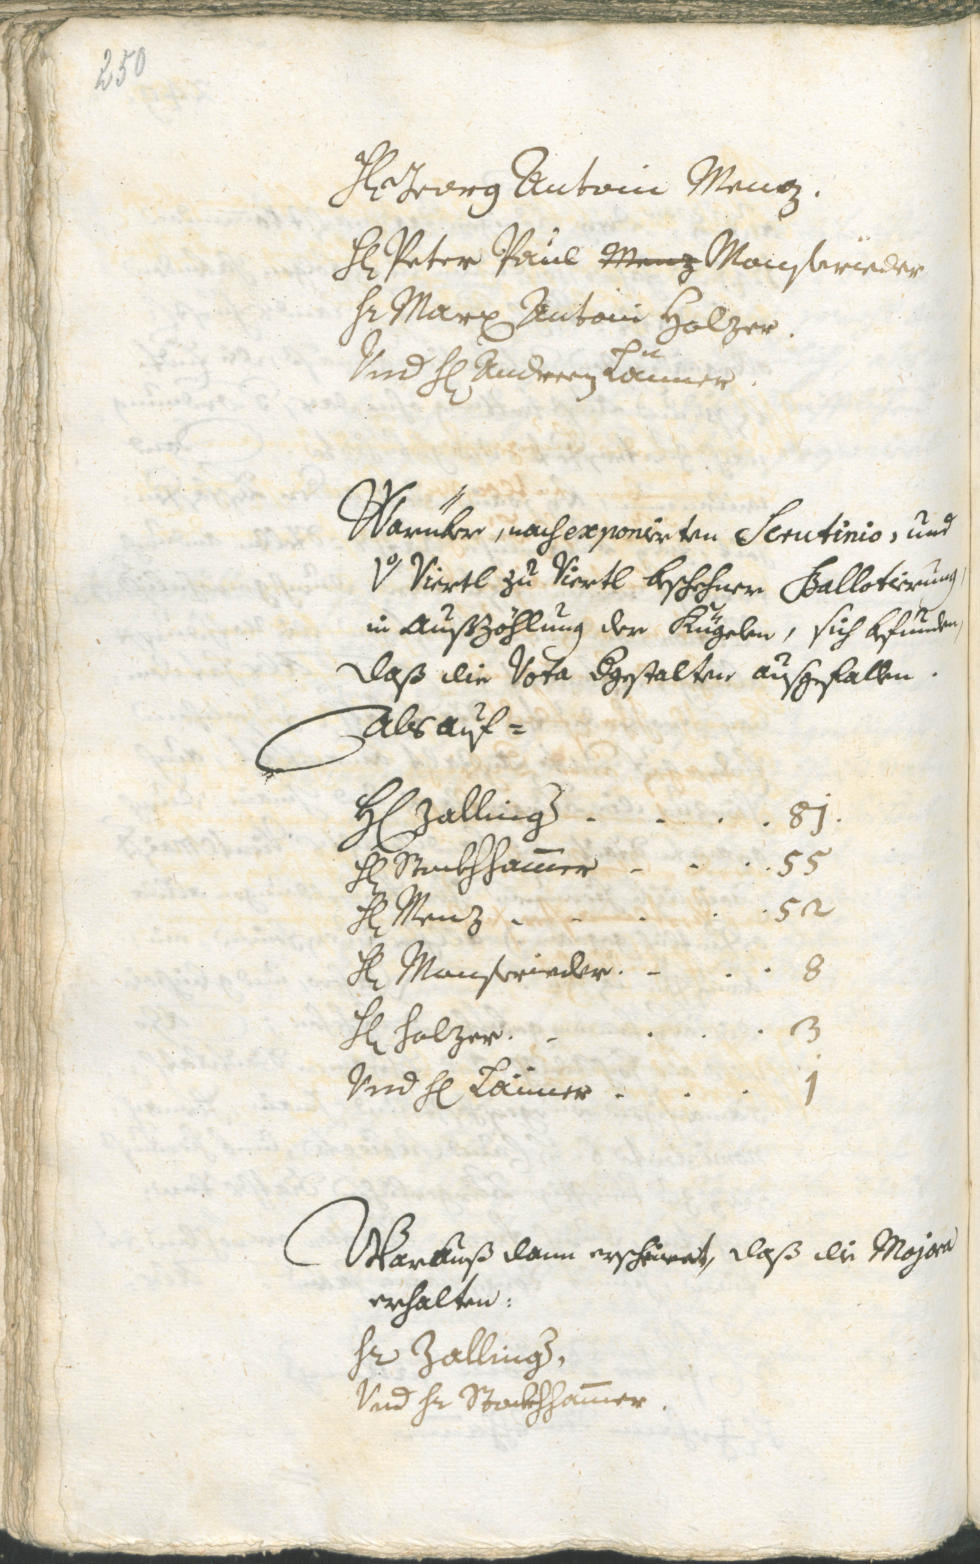 250
H: Georg Antoni Menz.
H: Peter Paul Menz Monsrieder
Hr Marx Antoni Holzer.
Vnd H: Andreen Lanner.
Warüber, nach exponirten Scrutinio, und
Vo Viertl zu Viertl beschehner Ballotierung,
in Außzöhlung der Kügelen, sich befunden,
daß die Vota dergestalten außgefallen.
Als auf =
H: Zalling . . . . 81.
H: Stockhhamer . . . 55
H: Menz . . . . . 52
H: Monsrieder . . . . 8
H: Holzer . . . . 3
Vnd H: Lanner . . . 1
Warauß dann erscheinet, daß die Majora
erhalten:
Hr Zalling,
Vnd Hr Stockhhamer.